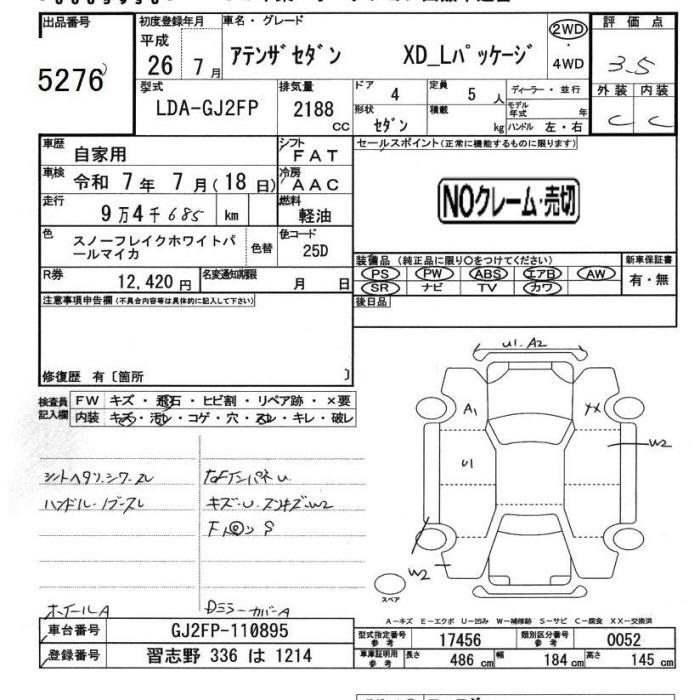 出品番号 初度登録年月 車名・グレード 評価点
5276 平成 26年 7月 アテンザセダン XD_Lパッケージ 2WD・4WD 3.5
型式 排気量 ドア 4 定員 5人 ディーラー・並行 外装 内装
LDA-GJ2FP 2188cc 形状 セダン 積載 kg モデル年式 年 ハンドル 左・右 C C
車歴 自家用 シフト FAT セールスポイント(正常に機能するものに限ります)
車検 令和 7年 7月(18日) 冷房 AAC
走行 9万4千685 km 燃料 軽油 NOクレーム・売切
色 スノーフレイクホワイトパールマイカ 色替 色コード 25D
装備品(純正品に限り○をつけてください) 新車保証書
PS PW ABS エアB AW 有・無
SR ナビ TV カワ
R券 12,420円 名変通知期限 月 日
注意事項申告欄(不具合内容等は具体的に記入して下さい) 後日品
修復歴 有〔箇所 〕
検査員記入欄 FW キズ・飛石・ヒビ割・リペア跡・×要
内装 キズ・汚レ・コゲ・穴・スレ・キレ・破レ
U1.A2
A1 XX
U1 W2
W2
シートヘタリ.シワ.スレ
ハンドル・ノブ-スレ
キズ・U.
ホイールA DミラーカバーA
スペア
A-キズ E-エクボ U-凹み W-補修跡 S-サビ C-腐食 XX-交換済
車台番号 GJ2FP-110895 型式指定番号 参考 17456 類別区分番号 参考 0052
登録番号 習志野 336 は 1214 車庫証明用 参考 長さ 486cm 幅 184cm 高さ 145cm